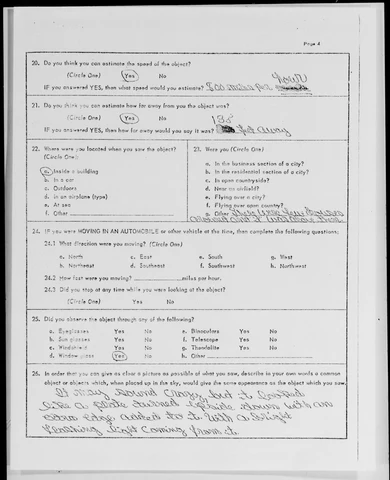 Page 4
20. Do you think you can estimate the speed of the object?
(Circle One) Yes No
IF you answered YES, then what speed would you estimate? 500 miles per hour
21. Do you think you can estimate how far away from you the object was?
(Circle One) Yes No
IF you answered YES, then how far away would you say it was? feet away
22. Where were you located when you saw the object?
(Circle One):
a. Inside a building
b. In a car
c. Outdoors
d. In an airplane (type)
e. At sea
f. Other
23. Were you (Circle One)
a. In the business section of a city?
b. In the residential section of a city?
c. In open countryside?
d. Near an airfield?
e. Flying over a city?
f. Flying over open country?
g. Other There were few houses
around
24. IF you were MOVING IN AN AUTOMOBILE or other vehicle at the time, then complete the following questions:
24.1 What direction were you moving? (Circle One)
a. North c. East e. South g. West
b. Northeast d. Southeast f. Southwest h. Northwest
24.2 How fast were you moving? miles per hour.
24.3 Did you stop at any time while you were looking at the object?
(Circle One) Yes No
25. Did you observe the object through any of the following?
a. Eyeglasses Yes No e. Binoculars Yes No
b. Sun glasses Yes No f. Telescope Yes No
c. Windshield Yes No g. Theodolite Yes No
d. Window glass Yes No h. Other
26. In order that you can give as clear a picture as possible of what you saw, describe in your own words a common
object or objects which, when placed up in the sky, would give the same appearance as the object which you saw.
It may sound crazy, but it looked
like a plate turned upside down with an
extra edge added to it. With a bright
flashing light coming from it.